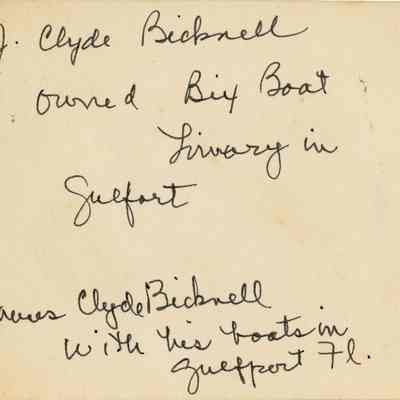 J. Clyde Bicknell
owned Bix Boat
Livvary in
Gulfort
James Clyde Bicknell
with his boats in
Gulfport Fl.